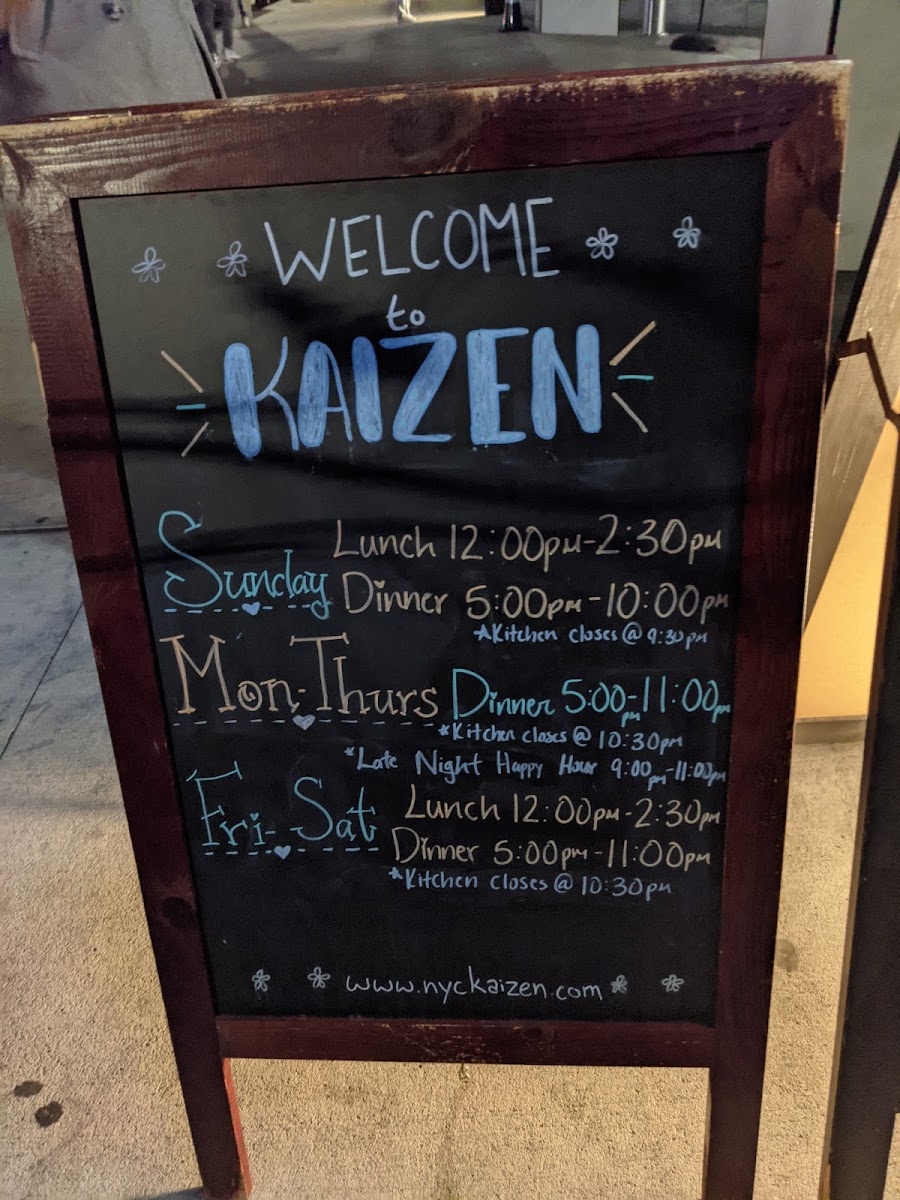 WELCOME
to
KAIZEN
Sunday Lunch 12:00pm-2:30pm
Dinner 5:00pm-10:00pm
*Kitchen closes @ 9:30pm
Mon-Thurs Dinner 5:00pm-11:00pm
*Kitchen closes @ 10:30pm
*Late Night Happy Hour 9:00pm-11:00pm
Fri-Sat Lunch 12:00pm-2:30pm
Dinner 5:00pm-11:00pm
*Kitchen closes @ 10:30pm
www.nyckaizen.com